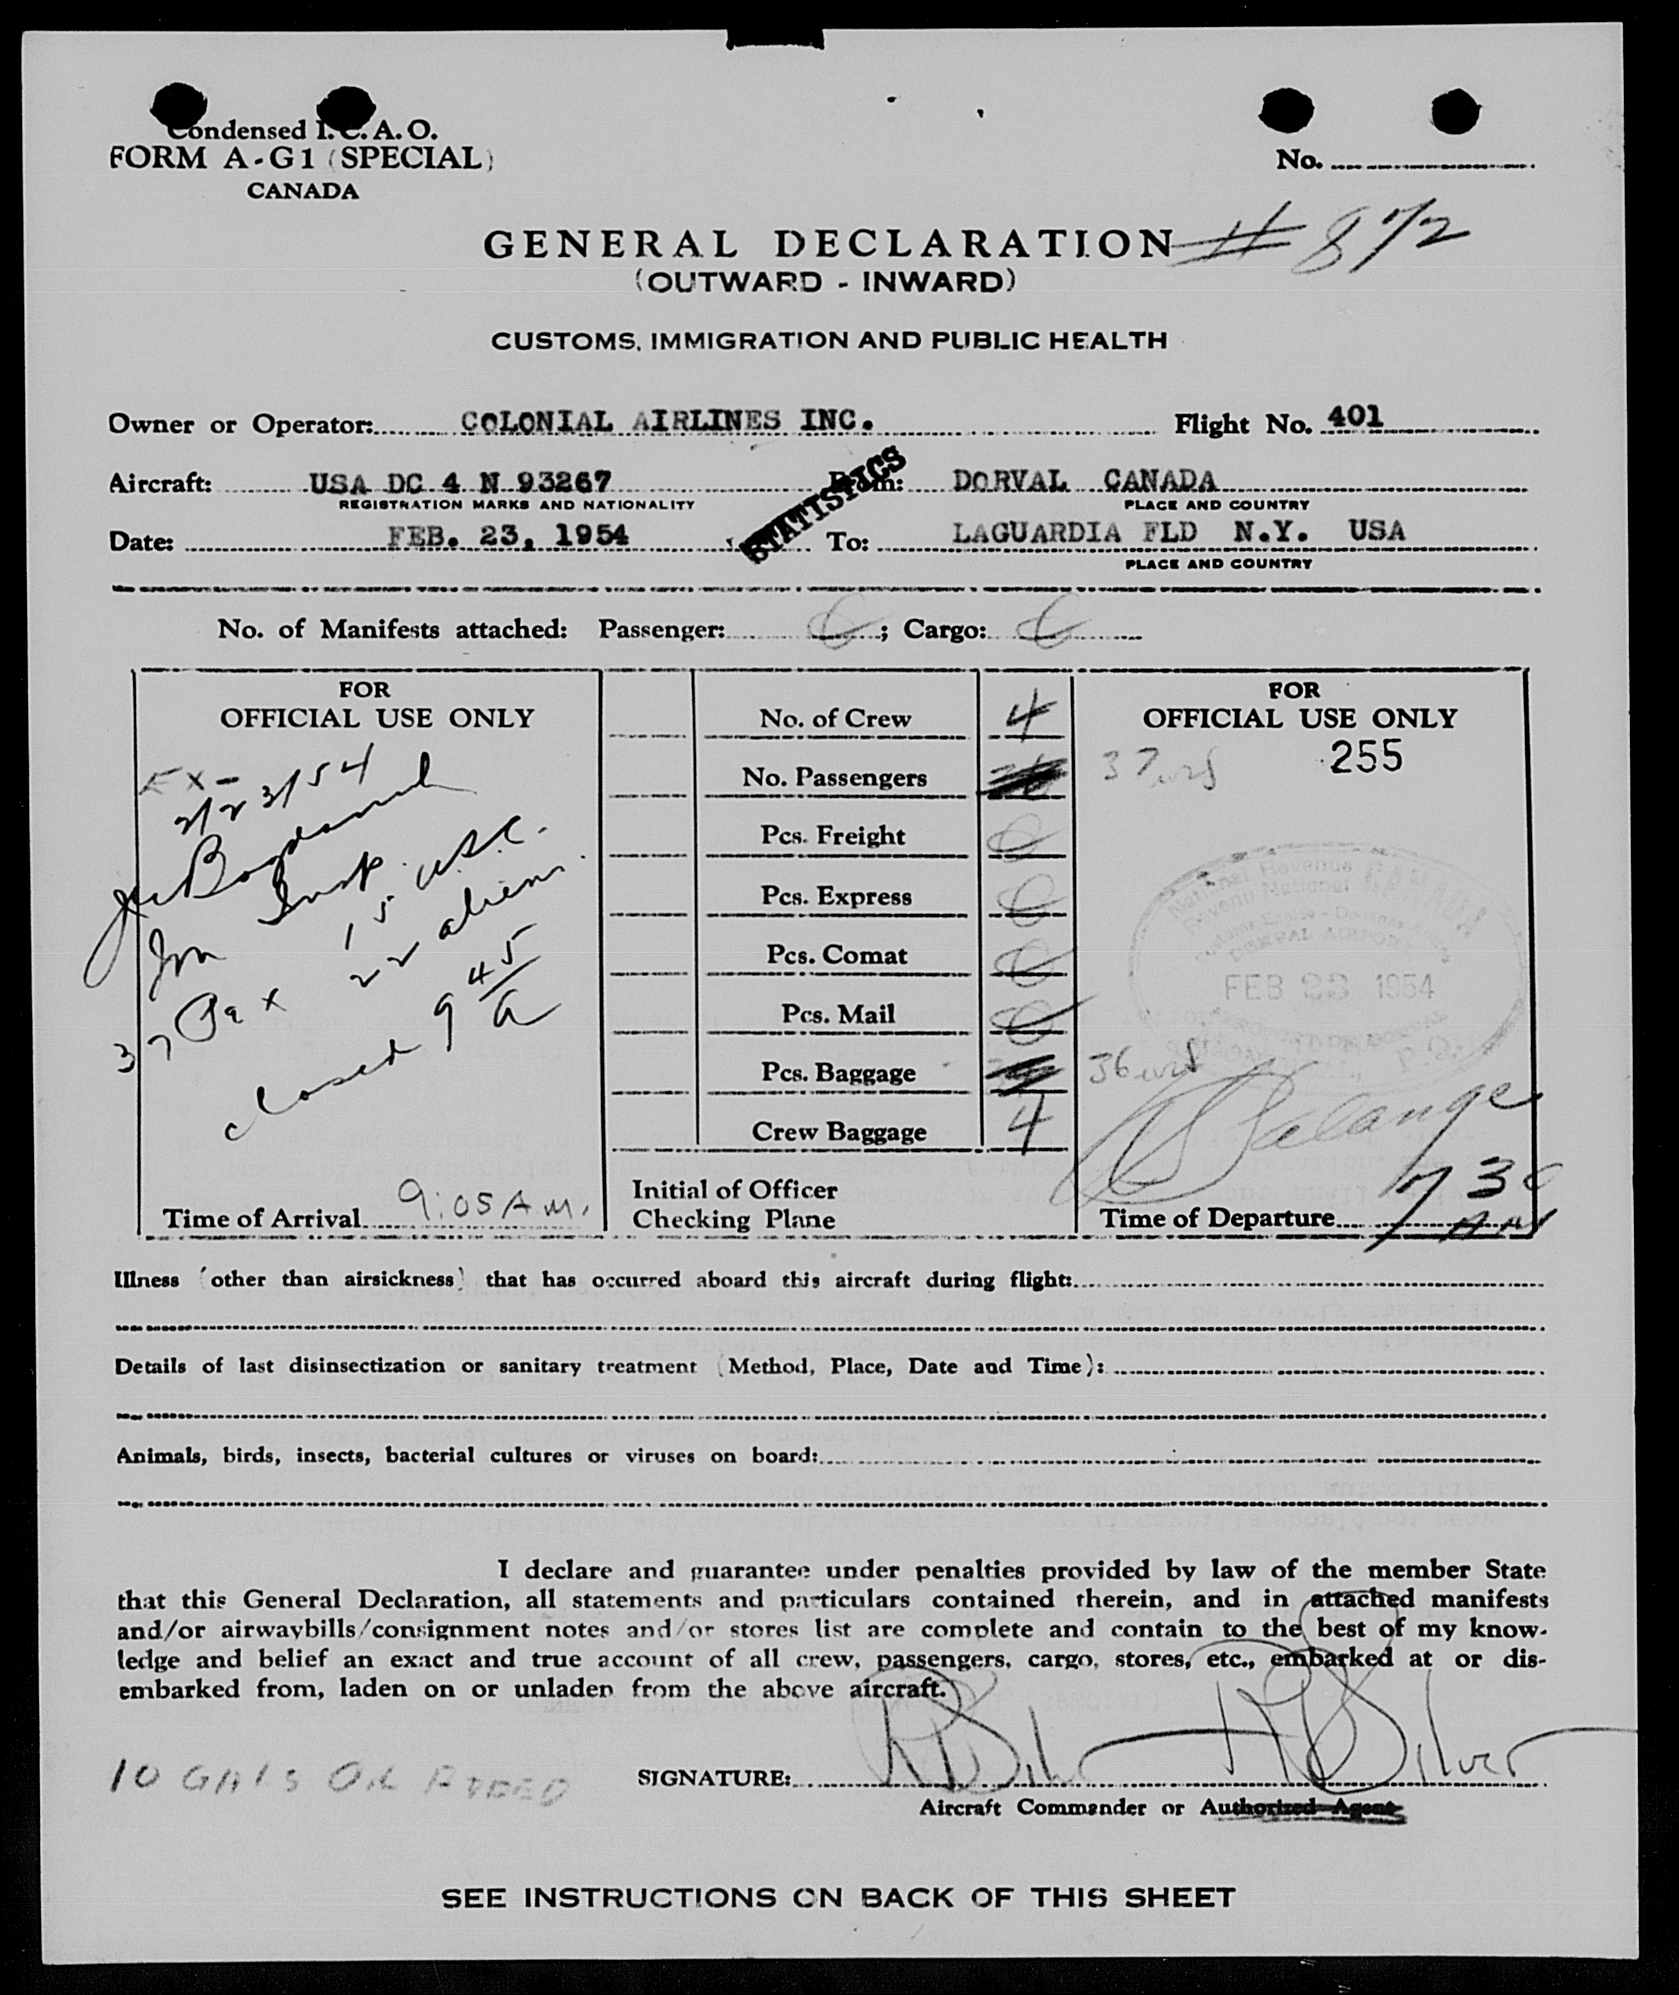 Condensed I.C.A.O.
FORM A-G1 (SPECIAL)
CANADA
No.
GENERAL DECLARATION # 872
(OUTWARD - INWARD)
CUSTOMS, IMMIGRATION AND PUBLIC HEALTH
Owner or Operator: COLONIAL AIRLINES INC. Flight No. 401
Aircraft: USA DC 4 N 93267 From: DORVAL CANADA
REGISTRATION MARKS AND NATIONALITY PLACE AND COUNTRY
STATISTICS
Date: FEB. 23, 1954 To: LAGUARDIA FLD N.Y. USA
PLACE AND COUNTRY
No. of Manifests attached: Passenger: ; Cargo:
FOR
OFFICIAL USE ONLY
EX-
2/23/54
Insp.
37 Pax 15 USC.
22 aliens.
closed 9 45/A
Time of Arrival 9:05 A.M.
No. of Crew 4
No. Passengers
Pcs. Freight
Pcs. Express
Pcs. Comat
Pcs. Mail
Pcs. Baggage
Crew Baggage 4
Initial of Officer
Checking Plane
FOR
OFFICIAL USE ONLY
37 255
National Revenue
FEB 23 1954
36
Time of Departure 7 30
Illness (other than airsickness) that has occurred aboard this aircraft during flight:
Details of last disinsectization or sanitary treatment (Method, Place, Date and Time):
Animals, birds, insects, bacterial cultures or viruses on board:
I declare and guarantee under penalties provided by law of the member State
that this General Declaration, all statements and particulars contained therein, and in attached manifests
and/or airwaybills/consignment notes and/or stores list are complete and contain to the best of my know-
ledge and belief an exact and true account of all crew, passengers, cargo, stores, etc., embarked at or dis-
embarked from, laden on or unladen from the above aircraft.
10 GALS OIL ADDED
SIGNATURE: Silver
Aircraft Commander or Authorized Agent
SEE INSTRUCTIONS ON BACK OF THIS SHEET